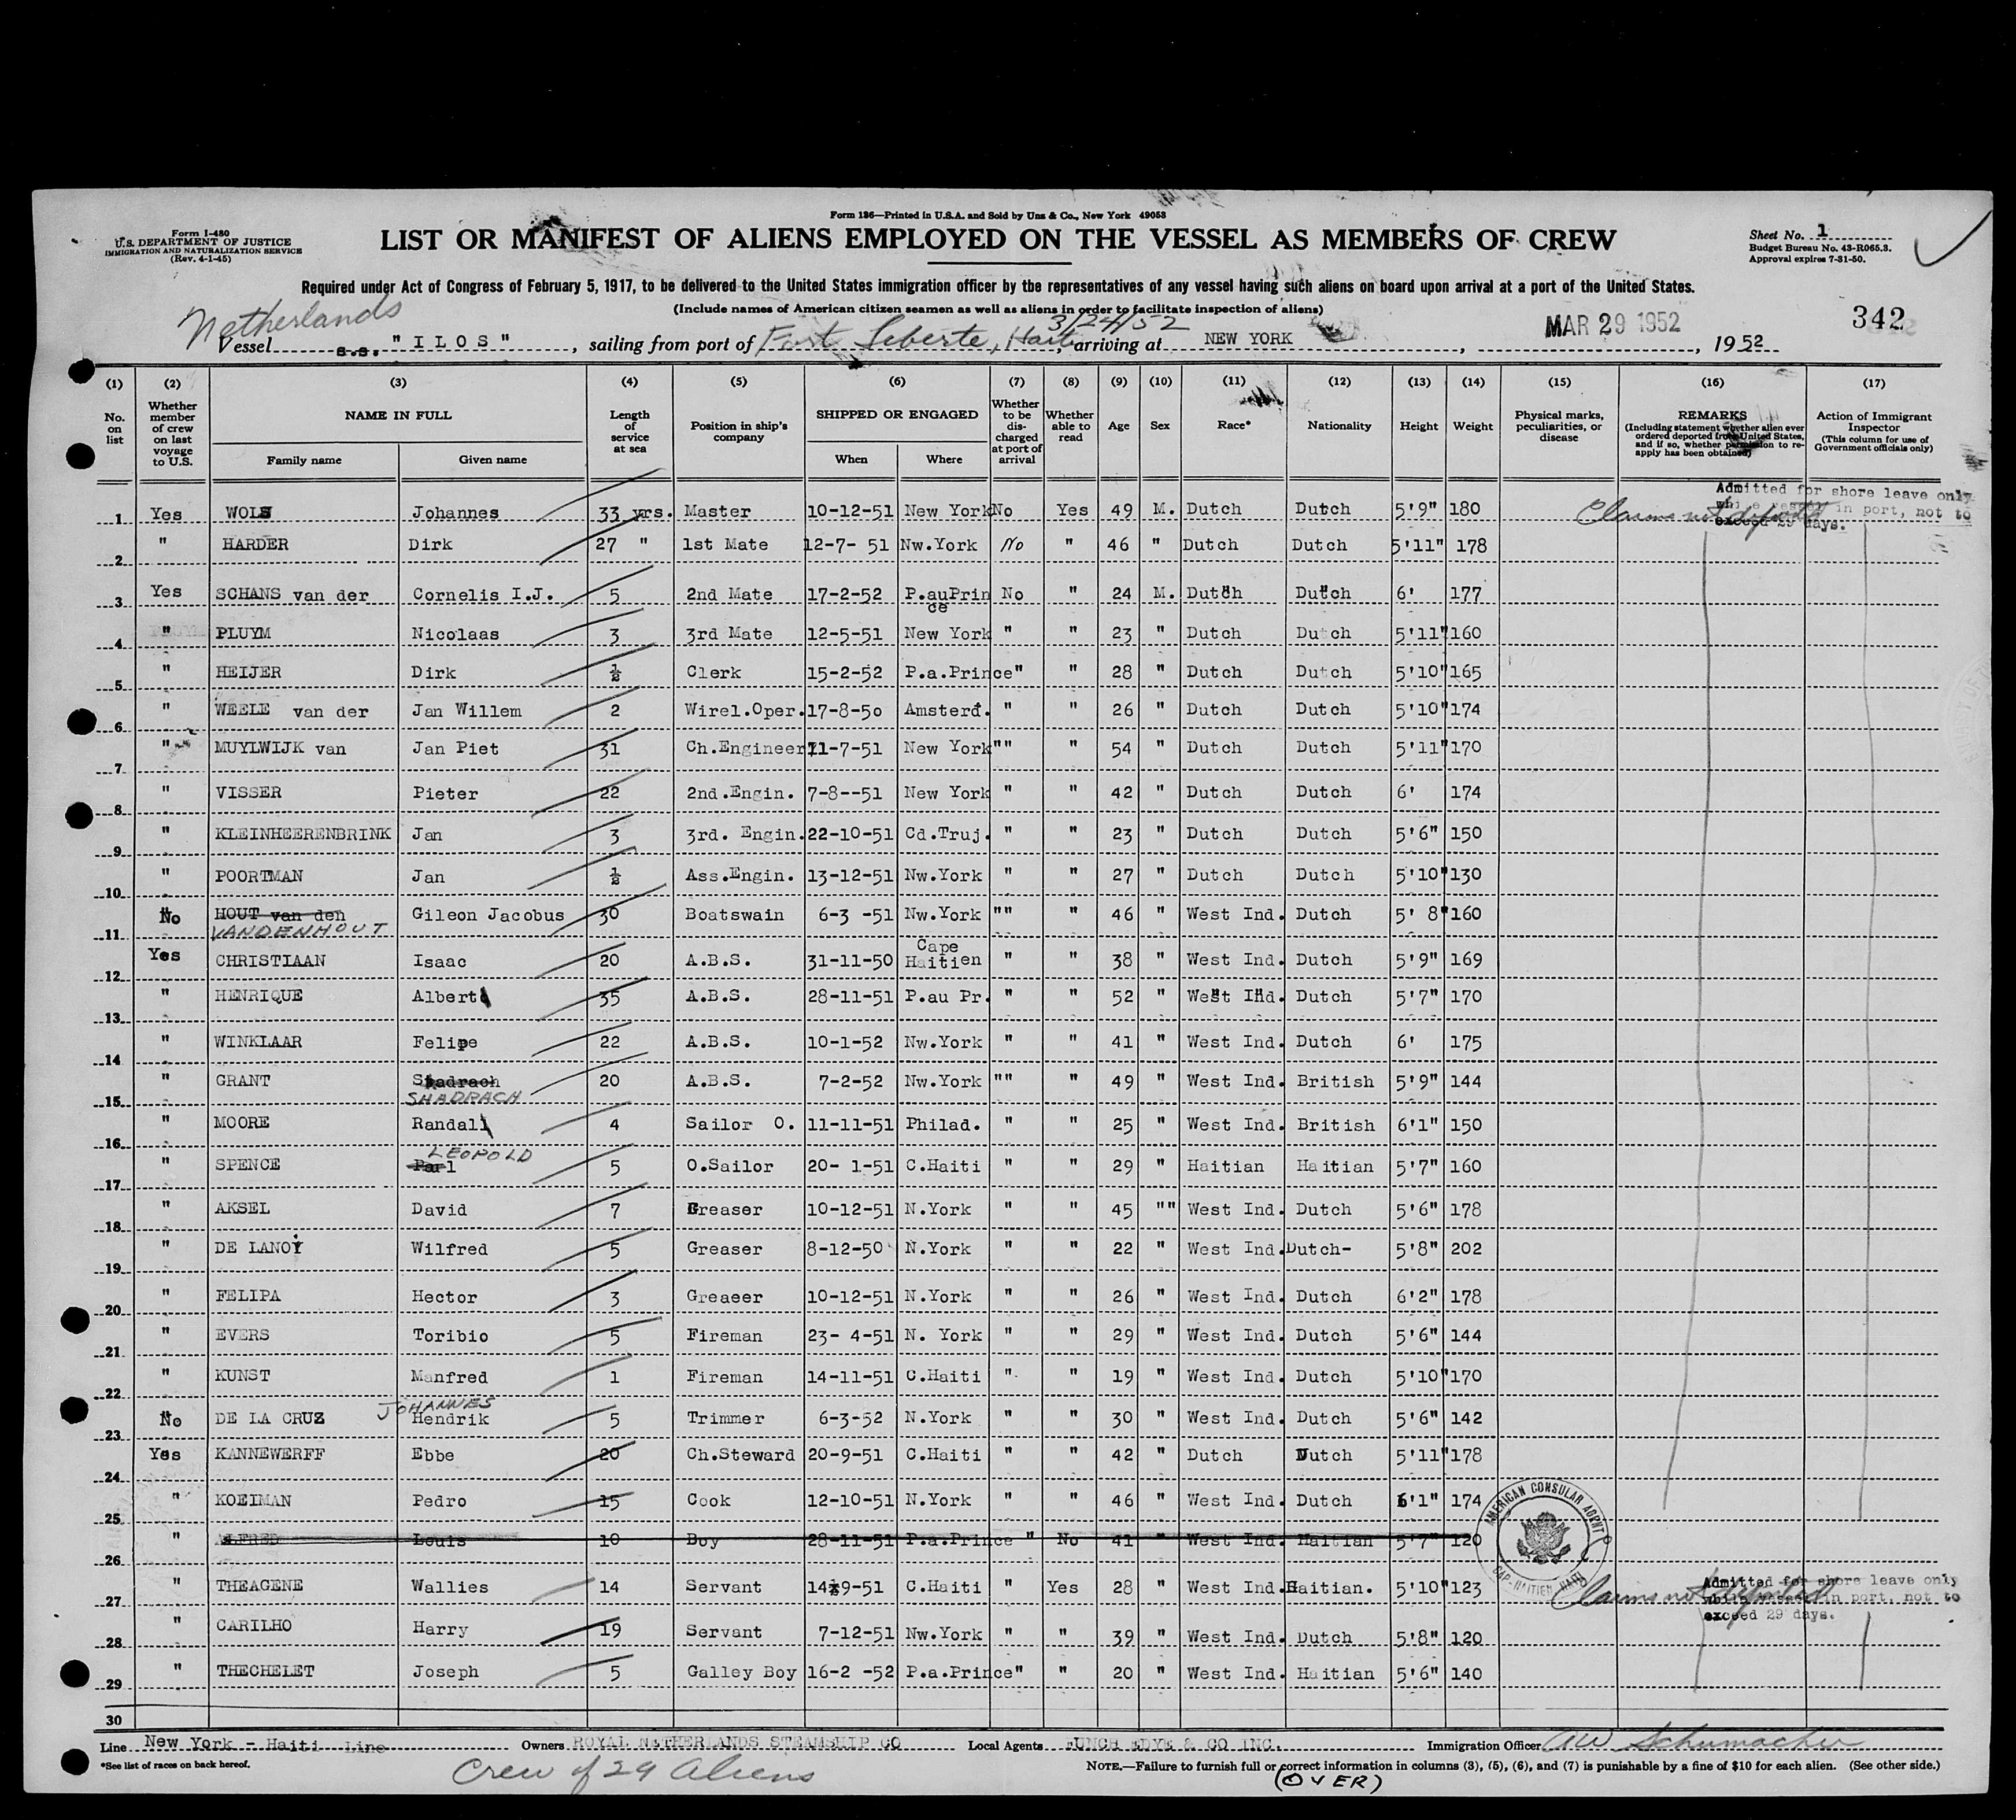 Form 136—Printed in U.S.A. and Sold by Unz & Co., New York 49053
Form I-480
U.S. DEPARTMENT OF JUSTICE
IMMIGRATION AND NATURALIZATION SERVICE
(Rev. 4-1-45)
LIST OR MANIFEST OF ALIENS EMPLOYED ON THE VESSEL AS MEMBERS OF CREW
Sheet No. 1
Budget Bureau No. 43-R065.3.
Approval expires 7-31-50.
Required under Act of Congress of February 5, 1917, to be delivered to the United States immigration officer by the representatives of any vessel having such aliens on board upon arrival at a port of the United States.
(Include names of American citizen seamen as well as aliens in order to facilitate inspection of aliens)
Netherlands
3/24/52
MAR 29 1952
342
Vessel s.s. "ILOS", sailing from port of Fort Liberte, Haiti, arriving at NEW YORK, 1952
(1) (2) (3) (4) (5) (6) (7) (8) (9) (10) (11) (12) (13) (14) (15) (16) (17)
No. on list
Whether member of crew on last voyage to U.S.
NAME IN FULL
Family name
Given name
Length of service at sea
Position in ship's company
SHIPPED OR ENGAGED
When
Where
Whether to be discharged at port of arrival
Whether able to read
Age
Sex
Race*
Nationality
Height
Weight
Physical marks, peculiarities, or disease
REMARKS
(Including statement whether alien ever ordered deported from United States, and if so, whether permission to re-apply has been obtained)
Action of Immigrant Inspector
(This column for use of Government officials only)
Admitted for shore leave only
while vessel in port, not to
exceed 29 days.
Claims not deported
1 Yes WOLS Johannes 33 yrs. Master 10-12-51 New York No Yes 49 M. Dutch Dutch 5'9" 180
2 " HARDER Dirk 27 " 1st Mate 12-7- 51 Nw.York No " 46 " Dutch Dutch 5'11" 178
3 Yes SCHANS van der Cornelis I.J. 5 2nd Mate 17-2-52 P.auPrince No " 24 M. Dutch Dutch 6' 177
4 " PLUYM Nicolaas 3 3rd Mate 12-5-51 New York " " 23 " Dutch Dutch 5'11" 160
5 " HEIJER Dirk ½ Clerk 15-2-52 P.a.Prince " " 28 " Dutch Dutch 5'10" 165
6 " WEELE van der Jan Willem 2 Wirel.Oper. 17-8-50 Amsterd. " " 26 " Dutch Dutch 5'10" 174
7 " MUYLWIJK van Jan Piet 31 Ch.Engineer 11-7-51 New York "" " 54 " Dutch Dutch 5'11" 170
8 " VISSER Pieter 22 2nd.Engin. 7-8--51 New York " " 42 " Dutch Dutch 6' 174
9 " KLEINHEERENBRINK Jan 3 3rd. Engin. 22-10-51 Cd.Truj. " " 23 " Dutch Dutch 5'6" 150
10 " POORTMAN Jan ½ Ass.Engin. 13-12-51 Nw.York " " 27 " Dutch Dutch 5'10" 130
11 No HOUT van den VANDENHOUT Gileon Jacobus 30 Boatswain 6-3 -51 Nw.York "" " 46 " West Ind. Dutch 5' 8" 160
12 Yes CHRISTIAAN Isaac 20 A.B.S. 31-11-50 Cape Haitien " " 38 " West Ind. Dutch 5'9" 169
13 " HENRIQUE Albert 35 A.B.S. 28-11-51 P.au Pr. " " 52 " West Ind. Dutch 5'7" 170
14 " WINKLAAR Felipe 22 A.B.S. 10-1-52 Nw.York " " 41 " West Ind. Dutch 6' 175
15 " GRANT Shadrach SHADRACH 20 A.B.S. 7-2-52 Nw.York "" " 49 " West Ind. British 5'9" 144
16 " MOORE Randall 4 Sailor O. 11-11-51 Philad. " " 25 " West Ind. British 6'1" 150
17 " SPENCE Parl LEOPOLD 5 O.Sailor 20- 1-51 C.Haiti " " 29 " Haitian Haitian 5'7" 160
18 " AKSEL David 7 Greaser 10-12-51 N.York " " 45 "" West Ind. Dutch 5'6" 178
19 " DE LANOY Wilfred 5 Greaser 8-12-50 N.York " " 22 " West Ind. Dutch- 5'8" 202
20 " FELIPA Hector 3 Greaeer 10-12-51 N.York " " 26 " West Ind. Dutch 6'2" 178
21 " EVERS Toribio 5 Fireman 23- 4-51 N. York " " 29 " West Ind. Dutch 5'6" 144
22 " KUNST Manfred 1 Fireman 14-11-51 C.Haiti " " 19 " West Ind. Dutch 5'10" 170
23 No DE LA CRUZ JOHANNES Hendrik 5 Trimmer 6-3-52 N.York " " 30 " West Ind. Dutch 5'6" 142
24 Yes KANNEWERFF Ebbe 20 Ch.Steward 20-9-51 C.Haiti " " 42 " Dutch Dutch 5'11" 178
25 " KOEIMAN Pedro 15 Cook 12-10-51 N.York " " 46 " West Ind. Dutch 6'1" 174
26 " ALFRED Louis 10 Boy 28-11-51 P.a.Prince " No 41 " West Ind. Haitian 5'7" 120
27 " THEAGENE Wallies 14 Servant 14-9-51 C.Haiti " Yes 28 " West Ind. Haitian. 5'10" 123
28 " CARILHO Harry 19 Servant 7-12-51 Nw.York " " 39 " West Ind. Dutch 5'8" 120
29 " THECHELET Joseph 5 Galley Boy 16-2 -52 P.a.Prince " " 20 " West Ind. Haitian 5'6" 140
30
AMERICAN CONSULAR AGENT
CAP-HAITIEN HAITI
Claims not deported
Admitted for shore leave only
while vessel in port, not to
exceed 29 days.
Line New York - Haiti Line Owners ROYAL NETHERLANDS STEAMSHIP CO Local Agents FUNCH EDYE & CO INC. Immigration Officer AW Schumacher
*See list of races on back hereof.
Crew of 29 Aliens
NOTE.—Failure to furnish full or correct information in columns (3), (5), (6), and (7) is punishable by a fine of $10 for each alien. (See other side.)
(OVER)